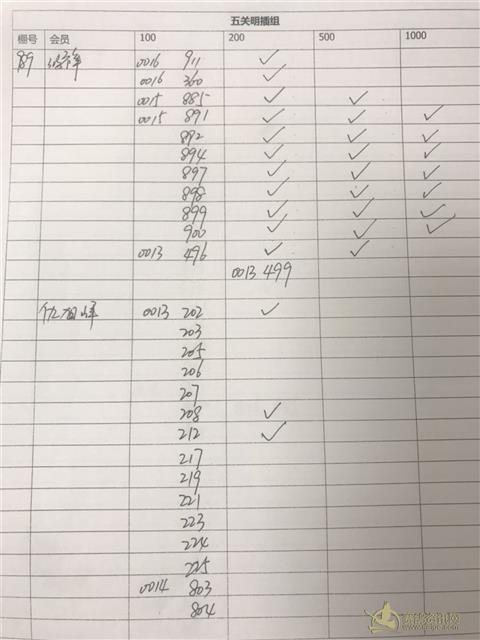 五关明插组
棚号 会员 100 200 500 1000
89 0016 911 ✓
0016 360 ✓
0015 885 ✓ ✓
0015 891 ✓ ✓ ✓
892 ✓ ✓ ✓
894 ✓ ✓ ✓
897 ✓ ✓ ✓
898 ✓ ✓ ✓
899 ✓ ✓ ✓
900 ✓ ✓ ✓
0013 496 ✓ ✓
0013 499
0013 202 ✓
203
205
206
207
208 ✓
212 ✓
217
219
221
223
224
225
0014 803
804